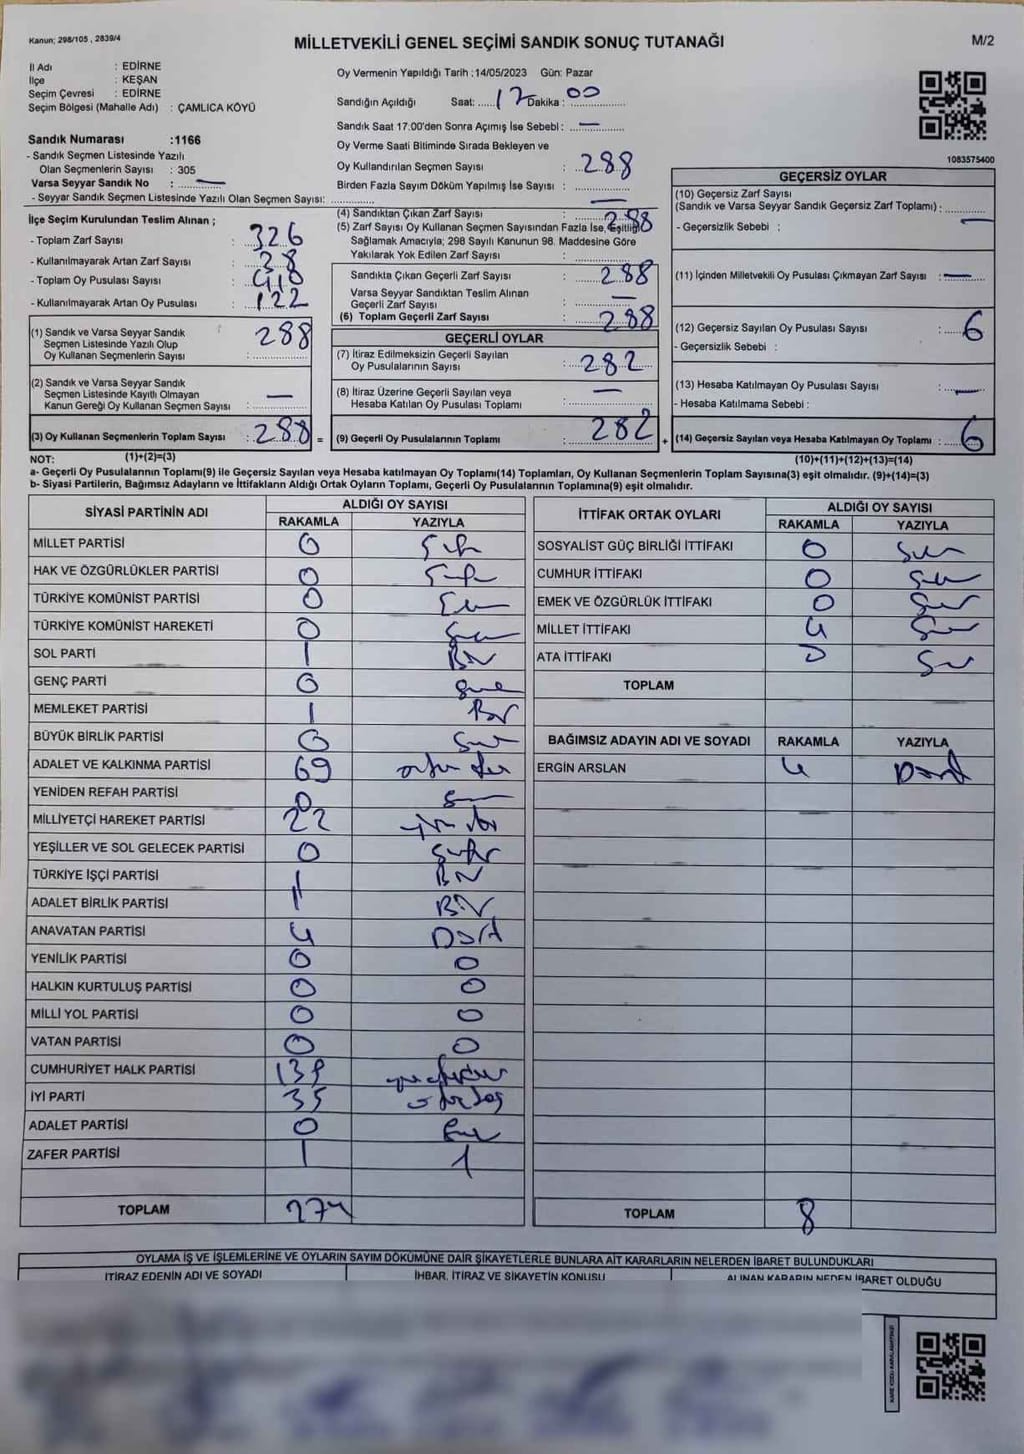 Kanun; 298/105 , 2839/4
MİLLETVEKİLİ GENEL SEÇİMİ SANDIK SONUÇ TUTANAĞI
M/2
İl Adı : EDİRNE
İlçe : KEŞAN
Seçim Çevresi : EDİRNE
Seçim Bölgesi (Mahalle Adı) : ÇAMLICA KÖYÜ
Sandık Numarası :1166
- Sandık Seçmen Listesinde Yazılı
Olan Seçmenlerin Sayısı : 305
Varsa Seyyar Sandık No : —
- Seyyar Sandık Seçmen Listesinde Yazılı Olan Seçmen Sayısı:
İlçe Seçim Kurulundan Teslim Alınan ;
- Toplam Zarf Sayısı : 326
- Kullanılmayarak Artan Zarf Sayısı : 38
- Toplam Oy Pusulası Sayısı : 410
- Kullanılmayarak Artan Oy Pusulası : 122
(1) Sandık ve Varsa Seyyar Sandık
Seçmen Listesinde Yazılı Olup
Oy Kullanan Seçmenlerin Sayısı : 288
(2) Sandık ve Varsa Seyyar Sandık
Seçmen Listesinde Kayıtlı Olmayan
Kanun Gereği Oy Kullanan Seçmen Sayısı : —
(3) Oy Kullanan Seçmenlerin Toplam Sayısı : 288 =
Oy Vermenin Yapıldığı Tarih :14/05/2023 Gün: Pazar
Sandığın Açıldığı Saat: 17 Dakika : 00
Sandık Saat 17:00'den Sonra Açımış İse Sebebi : —
Oy Verme Saati Bitiminde Sırada Bekleyen ve
Oy Kullandırılan Seçmen Sayısı : 288
Birden Fazla Sayım Döküm Yapılmış İse Sayısı : —
(4) Sandıktan Çıkan Zarf Sayısı : 288
(5) Zarf Sayısı Oy Kullanan Seçmen Sayısından Fazla İse, Eşitliği
Sağlamak Amacıyla; 298 Sayılı Kanunun 98. Maddesine Göre
Yakılarak Yok Edilen Zarf Sayısı :
Sandıkta Çıkan Geçerli Zarf Sayısı : 288
Varsa Seyyar Sandıktan Teslim Alınan
Geçerli Zarf Sayısı : —
(6) Toplam Geçerli Zarf Sayısı : 288
GEÇERLİ OYLAR
(7) İtiraz Edilmeksizin Geçerli Sayılan
Oy Pusulalarının Sayısı : 282
(8) İtiraz Üzerine Geçerli Sayılan veya
Hesaba Katılan Oy Pusulası Toplamı : —
(9) Geçerli Oy Pusulalarının Toplamı : 282 +
1083575400
GEÇERSİZ OYLAR
(10) Geçersiz Zarf Sayısı
(Sandık ve Varsa Seyyar Sandık Geçersiz Zarf Toplamı) :
- Geçersizlik Sebebi : —
(11) İçinden Milletvekili Oy Pusulası Çıkmayan Zarf Sayısı : —
(12) Geçersiz Sayılan Oy Pusulası Sayısı : 6
- Geçersizlik Sebebi :
(13) Hesaba Katılmayan Oy Pusulası Sayısı : —
- Hesaba Katılmama Sebebi :
(14) Geçersiz Sayılan veya Hesaba Katılmayan Oy Toplamı : 6
NOT: (1)+(2)=(3) (10)+(11)+(12)+(13)=(14)
a- Geçerli Oy Pusulalarının Toplamı(9) ile Geçersiz Sayılan veya Hesaba katılmayan Oy Toplamı(14) Toplamları, Oy Kullanan Seçmenlerin Toplam Sayısına(3) eşit olmalıdır. (9)+(14)=(3)
b- Siyasi Partilerin, Bağımsız Adayların ve İttifakların Aldığı Ortak Oyların Toplamı, Geçerli Oy Pusulalarının Toplamına(9) eşit olmalıdır.
SİYASİ PARTİNİN ADI ALDIĞI OY SAYISI
RAKAMLA YAZIYLA
MİLLET PARTİSİ 0 Sıfır
HAK VE ÖZGÜRLÜKLER PARTİSİ 0 Sıfır
TÜRKİYE KOMÜNİST PARTİSİ 0
TÜRKİYE KOMÜNİST HAREKETİ 0
SOL PARTİ 1 Bir
GENÇ PARTİ 0
MEMLEKET PARTİSİ 1 Bir
BÜYÜK BİRLİK PARTİSİ 0
ADALET VE KALKINMA PARTİSİ 69
YENİDEN REFAH PARTİSİ 0
MİLLİYETÇİ HAREKET PARTİSİ 22
YEŞİLLER VE SOL GELECEK PARTİSİ 0 Sıfır
TÜRKİYE İŞÇİ PARTİSİ 1 Bir
ADALET BİRLİK PARTİSİ 1 Bir
ANAVATAN PARTİSİ 4 Dört
YENİLİK PARTİSİ 0 0
HALKIN KURTULUŞ PARTİSİ 0 0
MİLLİ YOL PARTİSİ 0 0
VATAN PARTİSİ 0 0
CUMHURİYET HALK PARTİSİ 139
İYİ PARTİ 35 otuzbeş
ADALET PARTİSİ 0
ZAFER PARTİSİ 1 1
TOPLAM 274
İTTİFAK ORTAK OYLARI ALDIĞI OY SAYISI
RAKAMLA YAZIYLA
SOSYALİST GÜÇ BİRLİĞİ İTTİFAKI 0
CUMHUR İTTİFAKI 0
EMEK VE ÖZGÜRLÜK İTTİFAKI 0
MİLLET İTTİFAKI 4
ATA İTTİFAKI 0
TOPLAM
BAĞIMSIZ ADAYIN ADI VE SOYADI RAKAMLA YAZIYLA
ERGİN ARSLAN 4 Dört
TOPLAM 8
OYLAMA İŞ VE İŞLEMLERİNE VE OYLARIN SAYIM DÖKÜMÜNE DAİR ŞİKAYETLERLE BUNLARA AİT KARARLARIN NELERDEN İBARET BULUNDUKLARI
İTİRAZ EDENİN ADI VE SOYADI İHBAR, İTİRAZ VE ŞİKAYETİN KONUSU ALINAN KARARIN NEDEN İBARET OLDUĞU